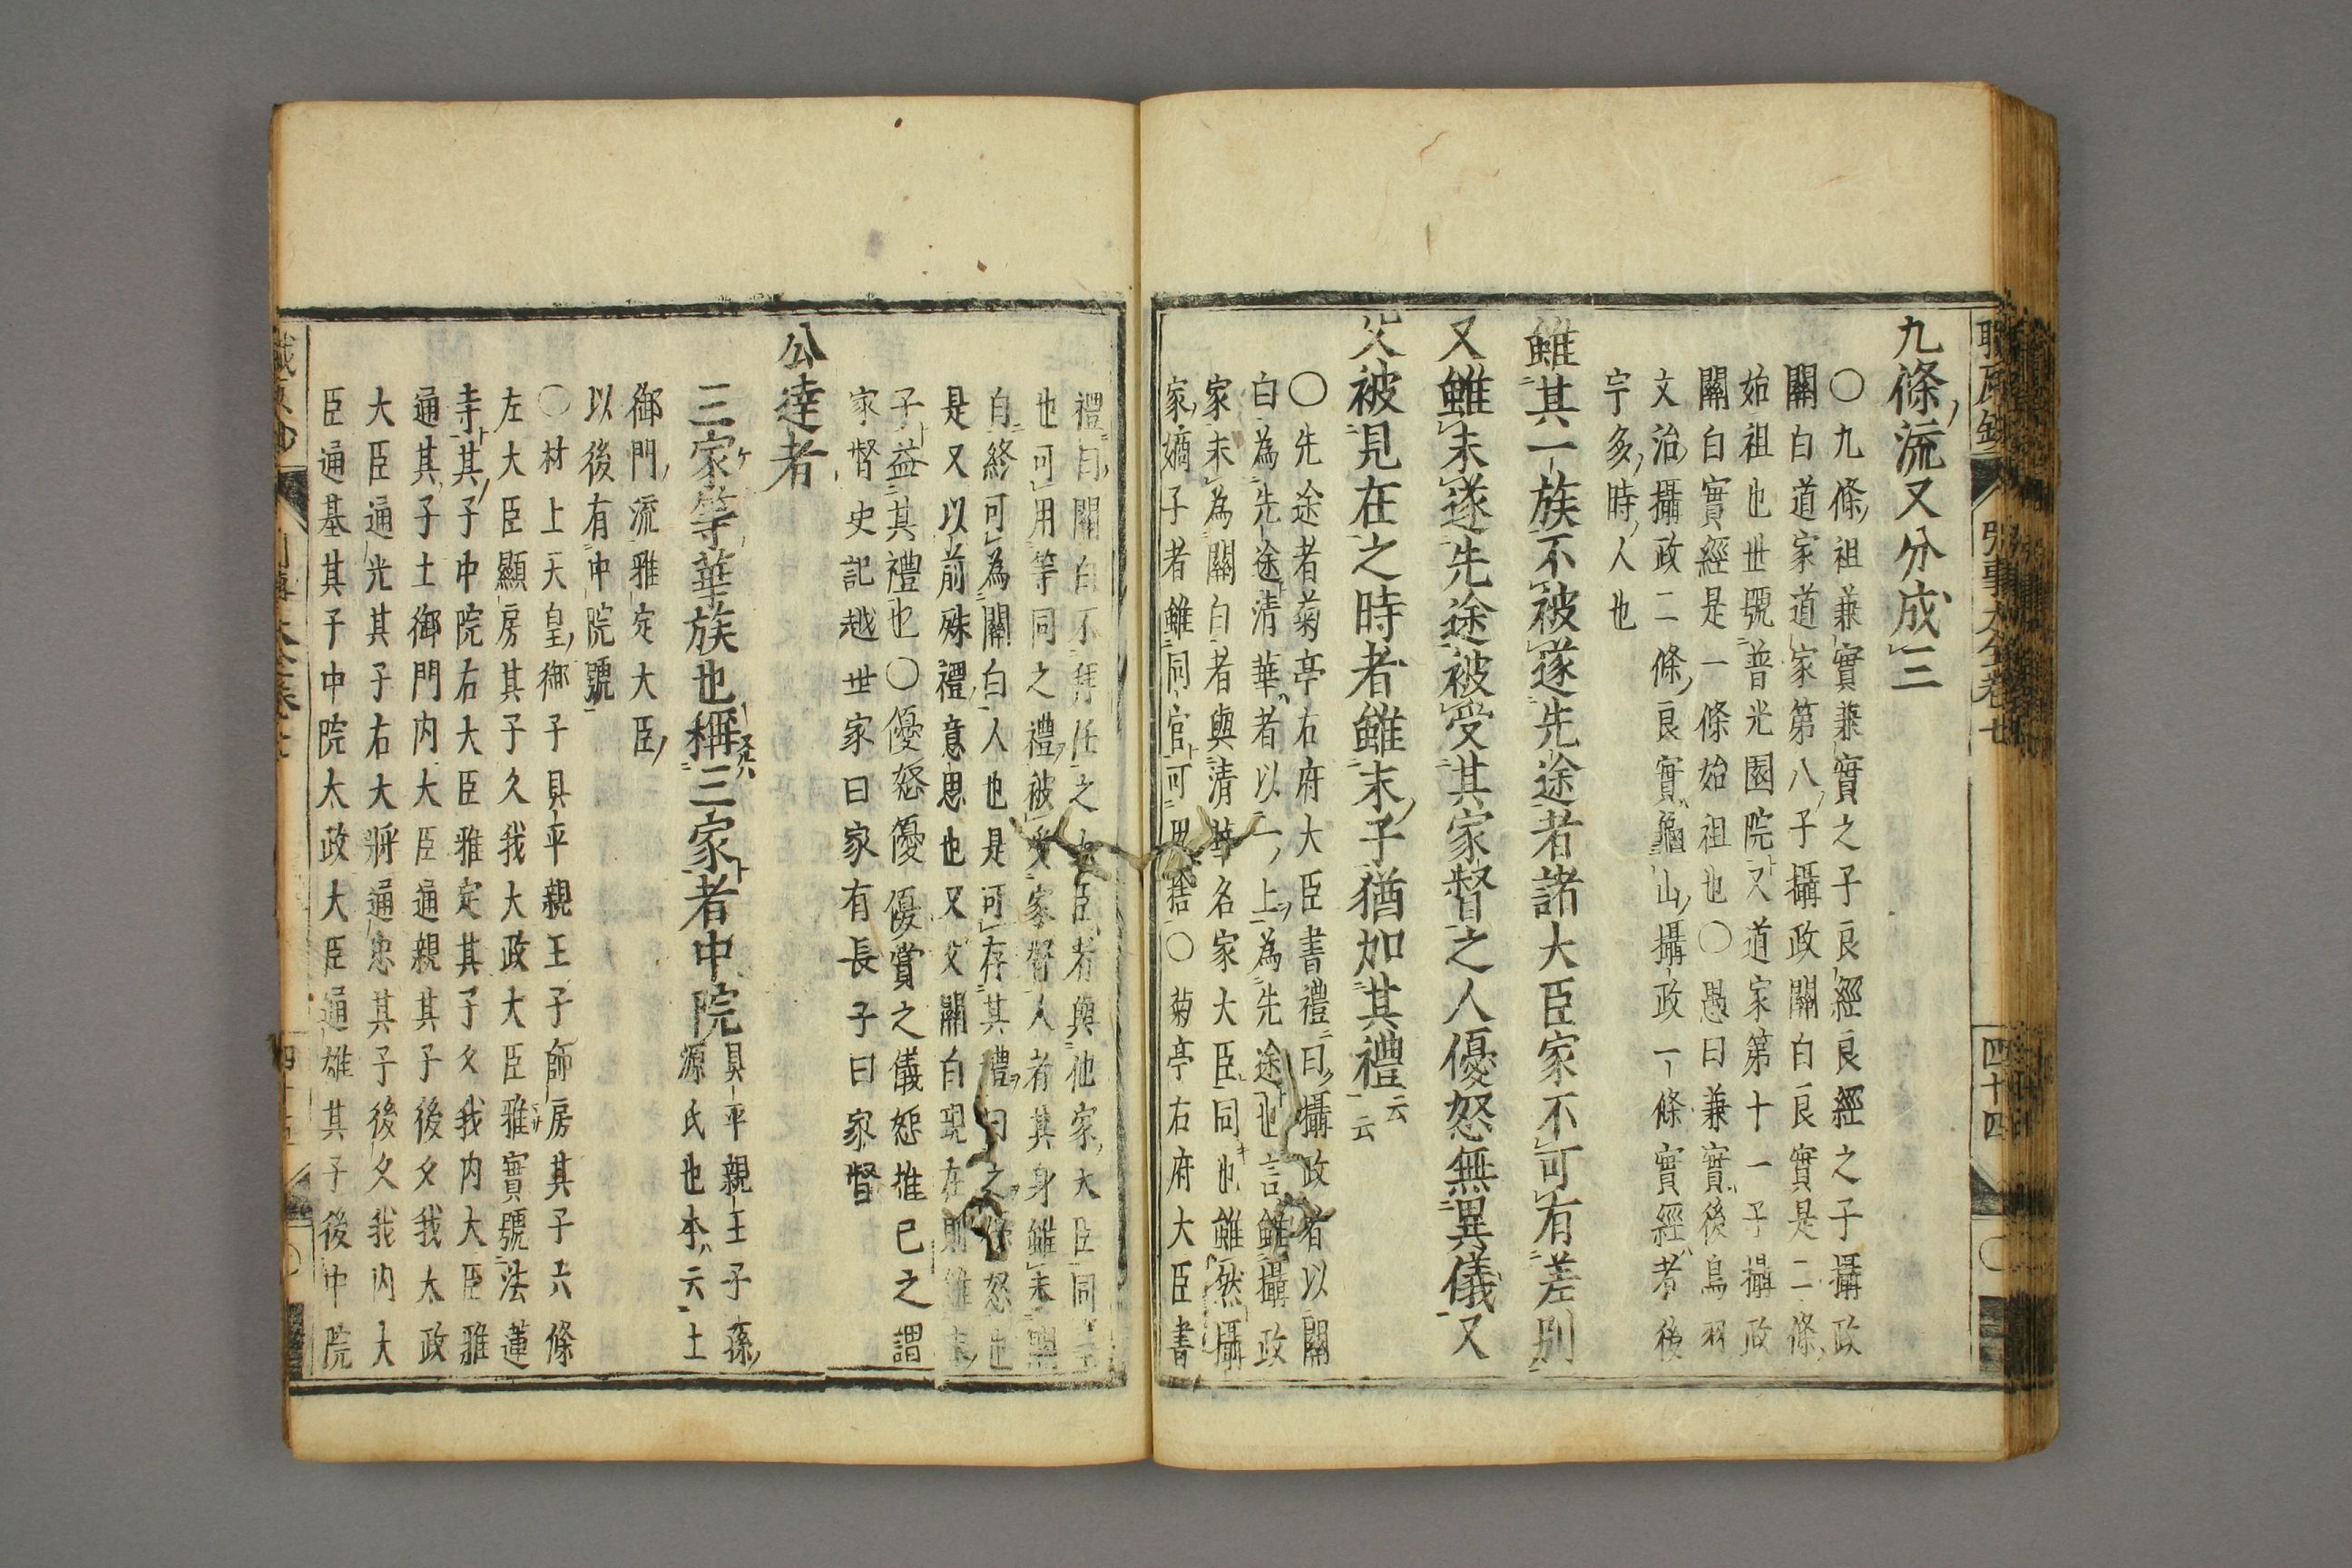 九條流又分成三
〇九條祖兼實兼實之子良經良經之子攝政
關白道家道家第八子攝政關白良實是二條
始祖也世號普光園院又道家第十一子攝政
關白實經是一條始祖也〇愚曰兼實後鳥羽
文治攝政二條良實龜山攝政一條實經者後
宇多時人也
雖其一族不被遂先途者諸大臣家不可有差別
又雖未遂先途被受其家督之人優怒無異儀又
父被見在之時者雖末子猶加其禮云云
〇先途者菊亭右府大臣書禮曰攝政者以關
白為先途清華者以一上為先途也言雖攝政
家末為關白者與清華名家大臣同也雖然攝
家嫡子者雖同官可 捨〇菊亭右府大臣書
禮曰關白不拜任之大臣者與他家大臣同
也可用等同之禮被 家督人者其身雖未
自終可為關白人也是可存其禮 之 怒也
是又以前殊禮意思也又父關白現在則雖末
子益其禮也〇優怒優優賞之儀怒推已之謂
家督史記越世家曰家有長子曰家督
公達者
三家等華族也稱三家者中院
具平親王子孫
源氏也本云土
御門流雅定大臣
以後有中院號
〇村上天皇御子具平親王子師房其子六條
左大臣顯房其子久我大政大臣雅實號法蓮
寺其子中院右大臣雅定其子久我内大臣雅
通其子土御門内大臣通親其子後久我太政
大臣通光其子右大將通忠其子後久我内大
臣通基其子中院太政大臣通雄其子後中院
四十四